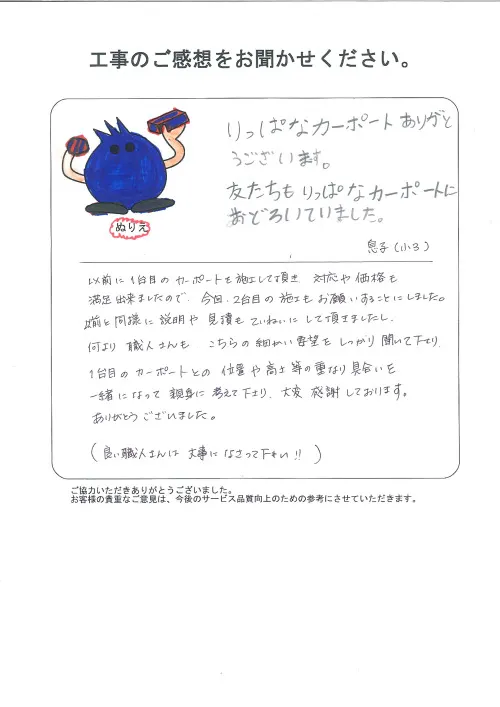 工事のご感想をお聞かせください。
ぬりえ
りっぱなカーポートありがと
うございます。
友たちもりっぱなカーポートに
おどろいていました。
息子(小3)
以前に1台目のカーポートを施工して頂き 対応や価格も
満足出来ましたので、今回、2台目の施工もお願いすることにしました。
以前と同様に説明や見積もていねいにして頂きましたし、
何より職人さんも こちらの細かい要望をしっかり聞いて下さり、
1台目のカーポートとの位置や高さ等の重なり具合いを
一緒になって親身に考えて下さり、大変感謝しております。
ありがとうございました。
(良い職人さんは大事になさって下さい!!)
ご協力いただきありがとうございました。
お客様の貴重なご意見は、今後のサービス品質向上のための参考にさせていただきます。